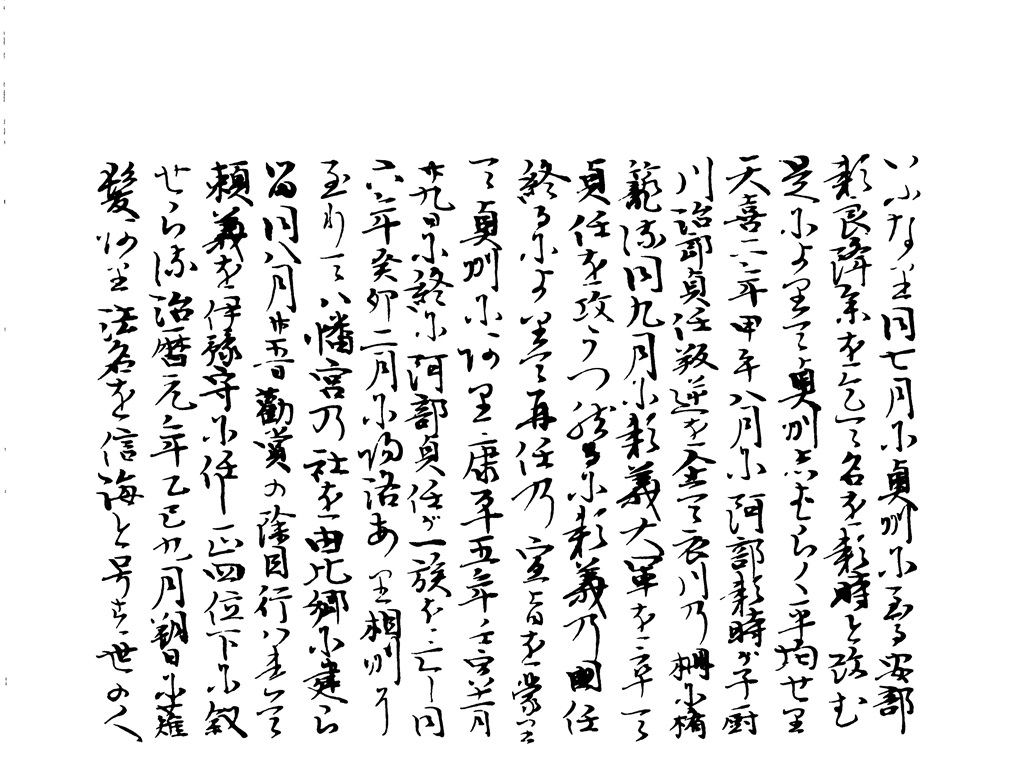 いふなり同七月に奥州に至る安部
頼良降参を乞て名を頼時と改む
是によりて奥州しはらく平均せり
天喜二年甲午八月に阿部頼時が子厨
川治部貞任叛逆を企て衣川の柵に楯
籠る同九月に頼義大軍を卒て
貞任を攻うつ然るに頼義の國任
終るによりて再任の宣旨を蒙
て奥州にあり康平五年壬寅十二月
廿九日に終に阿部貞任が一族を亡し同
六年癸卯二月に帰洛あり相州に
至りて八幡宮の社を由比郷に建ら
る同八月廿五日勧賞の除目行はれて
頼義を伊豫守に任し正四位下に叙
せらる治暦元年乙巳九月朔日に薙
髪あり法名を信海と号す世の人